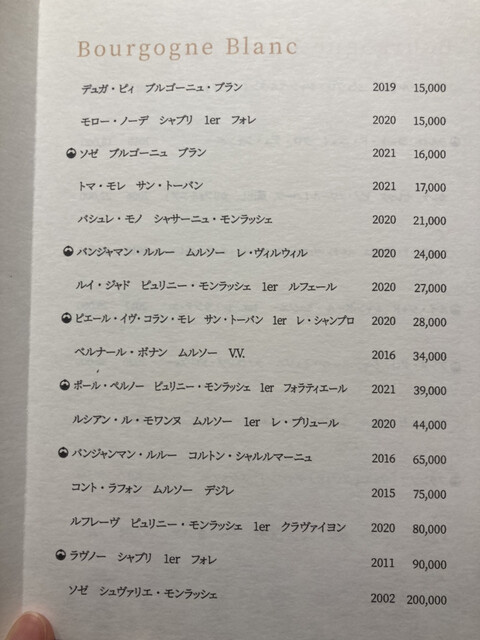 Bourgogne Blanc
デュガ・ピィ ブルゴーニュ・ブラン 2019 15,000
モロー・ノーデ シャブリ 1er フォレ 2020 15,000
ソゼ ブルゴーニュ ブラン 2021 16,000
トマ・モレ サン・トーバン 2021 17,000
バシュレ・モノ シャサーニュ・モンラッシェ 2020 21,000
バンジャマン・ルルー ムルソー レ・ヴィルウィル 2020 24,000
ルイ・ジャド ピュリニー・モンラッシェ 1er ルフェール 2020 27,000
ピエール・イヴ・コラン・モレ サン・トーバン 1er レ・シャンプロ 2020 28,000
ベルナール・ボナン ムルソー V.V. 2016 34,000
ポール・ペルノー ピュリニー・モンラッシェ 1er フォラティエール 2021 39,000
ルシアン・ル・モワンヌ ムルソー 1er レ・プリュール 2020 44,000
バンジャンマン・ルルー コルトン・シャルルマーニュ 2016 65,000
コント・ラフォン ムルソー デジレ 2015 75,000
ルフレーヴ ピュリニー・モンラッシェ 1er クラヴァイヨン 2020 80,000
ラヴノー シャブリ 1er フォレ 2011 90,000
ソゼ シュヴァリエ・モンラッシェ 2002 200,000